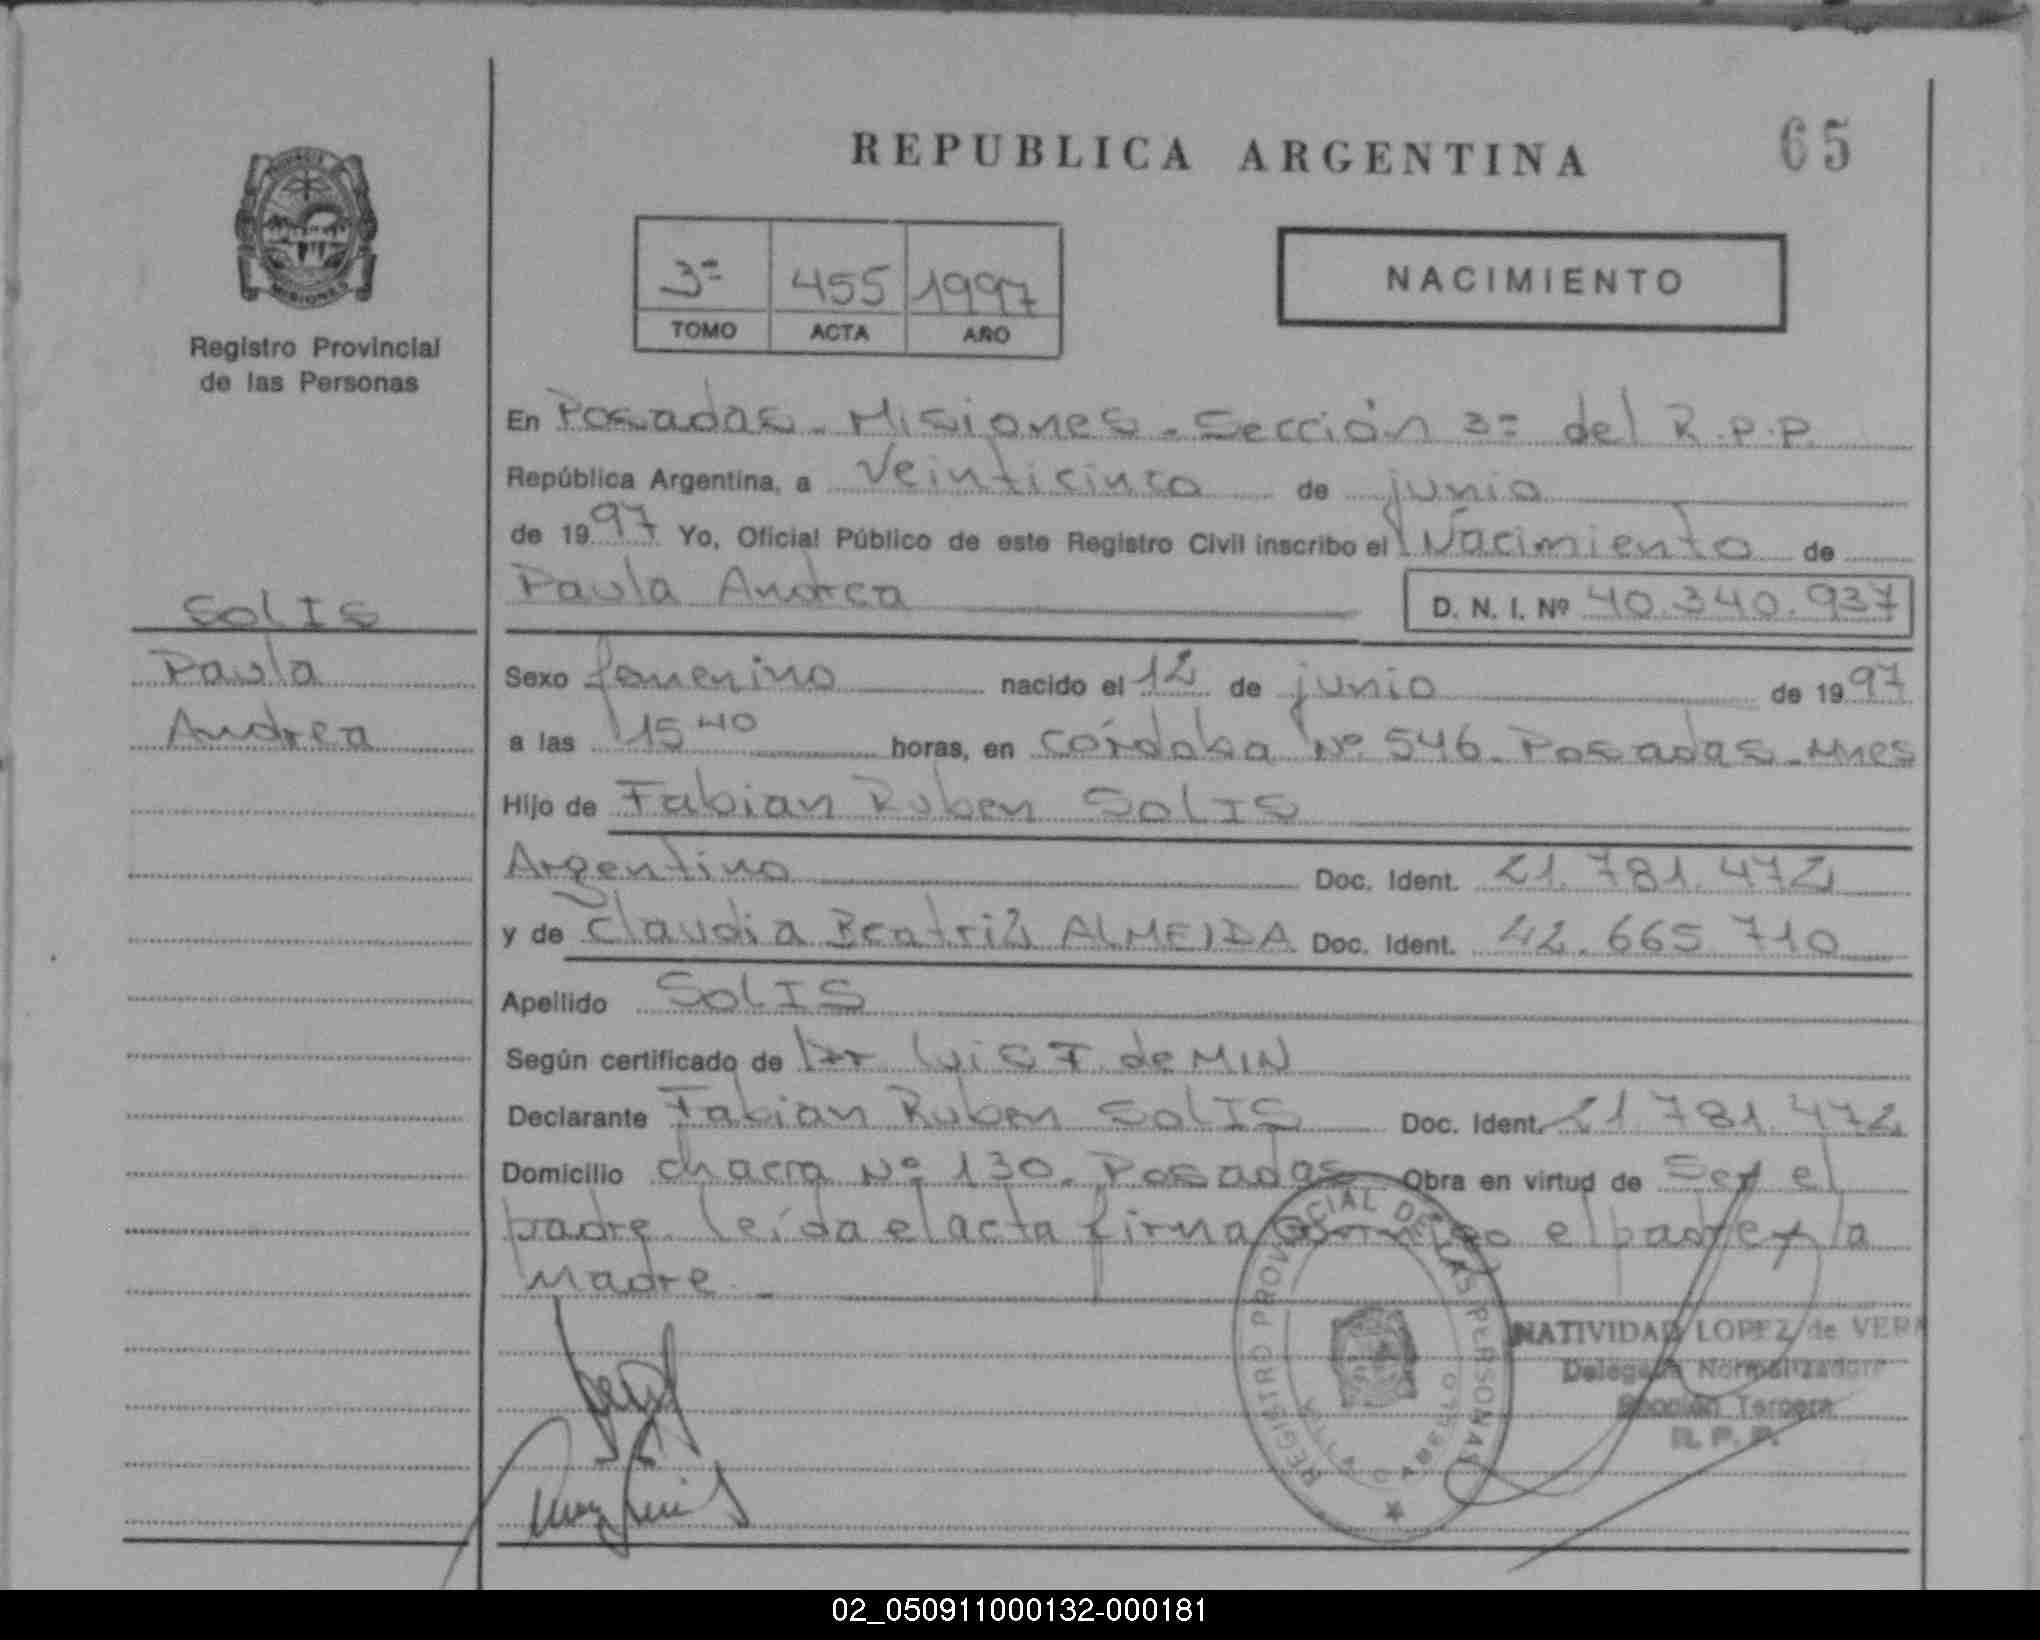 REPUBLICA ARGENTINA
65
MISIONES
Registro Provincial
de las Personas
3= 455 1997
TOMO ACTA AÑO
NACIMIENTO
En Posadas - Misiones - Sección 3= del R.P.P.
República Argentina, a Veinticinco de junio
de 1997 Yo, Oficial Público de este Registro Civil inscribo el Nacimiento de
Paula Andrea D. N. I. Nº 40.340.937
SolIS
Paula
Andrea
Sexo femenino nacido el 12 de junio de 1997
a las 15 40 horas, en córdoba Nº 546 - Posadas - Mnes
Hijo de Fabian Ruben SolIS
Argentino Doc. Ident. 21.781.472
y de Claudia Beatriz ALMEIDA Doc. Ident. 22.665.710
Apellido SolIS
Según certificado de Dr Luis F. de MIN
Declarante Fabian Ruben SolIS Doc. Ident. 21.781.472
Domicilio chacra Nº 130 - Posadas Obra en virtud de Ser el
padre leída el acta firma conmigo el padre y la
Madre -
REGISTRO PROVINCIAL DE LAS PERSONAS
NATIVIDAD LOPEZ de VERA
Delegada Normalizadora
Sección Tercera
R. P. P.
02_050911000132-000181